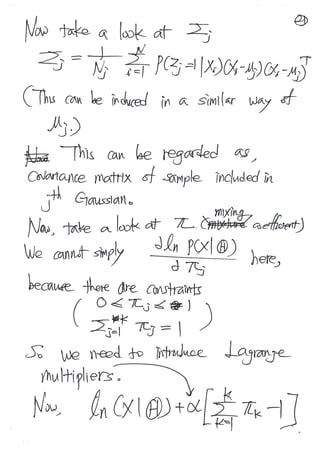 21
Now take a look at Σj
Σj = 1/Nj Σ_{i=1}^{N} P(Zj=1|Xi)(Xi-μj)(Xi-μj)^T
(This can be induced in a similar way of
μj.)
This can be regarded as,
Covariance matrix of sample included in
jth Gaussian.
Now, take a look at π (mixing coefficient)
We cannot simply ∂ln P(X|Θ) / ∂πj here,
because there are constraints
( 0 ≤ πj ≤ 1
Σ_{j=1}^{k} πj = 1 )
So we need to introduce Lagrange
multipliers.
Now, ln(X|Θ) + α[Σ_{k=1}^{k} πk - 1]